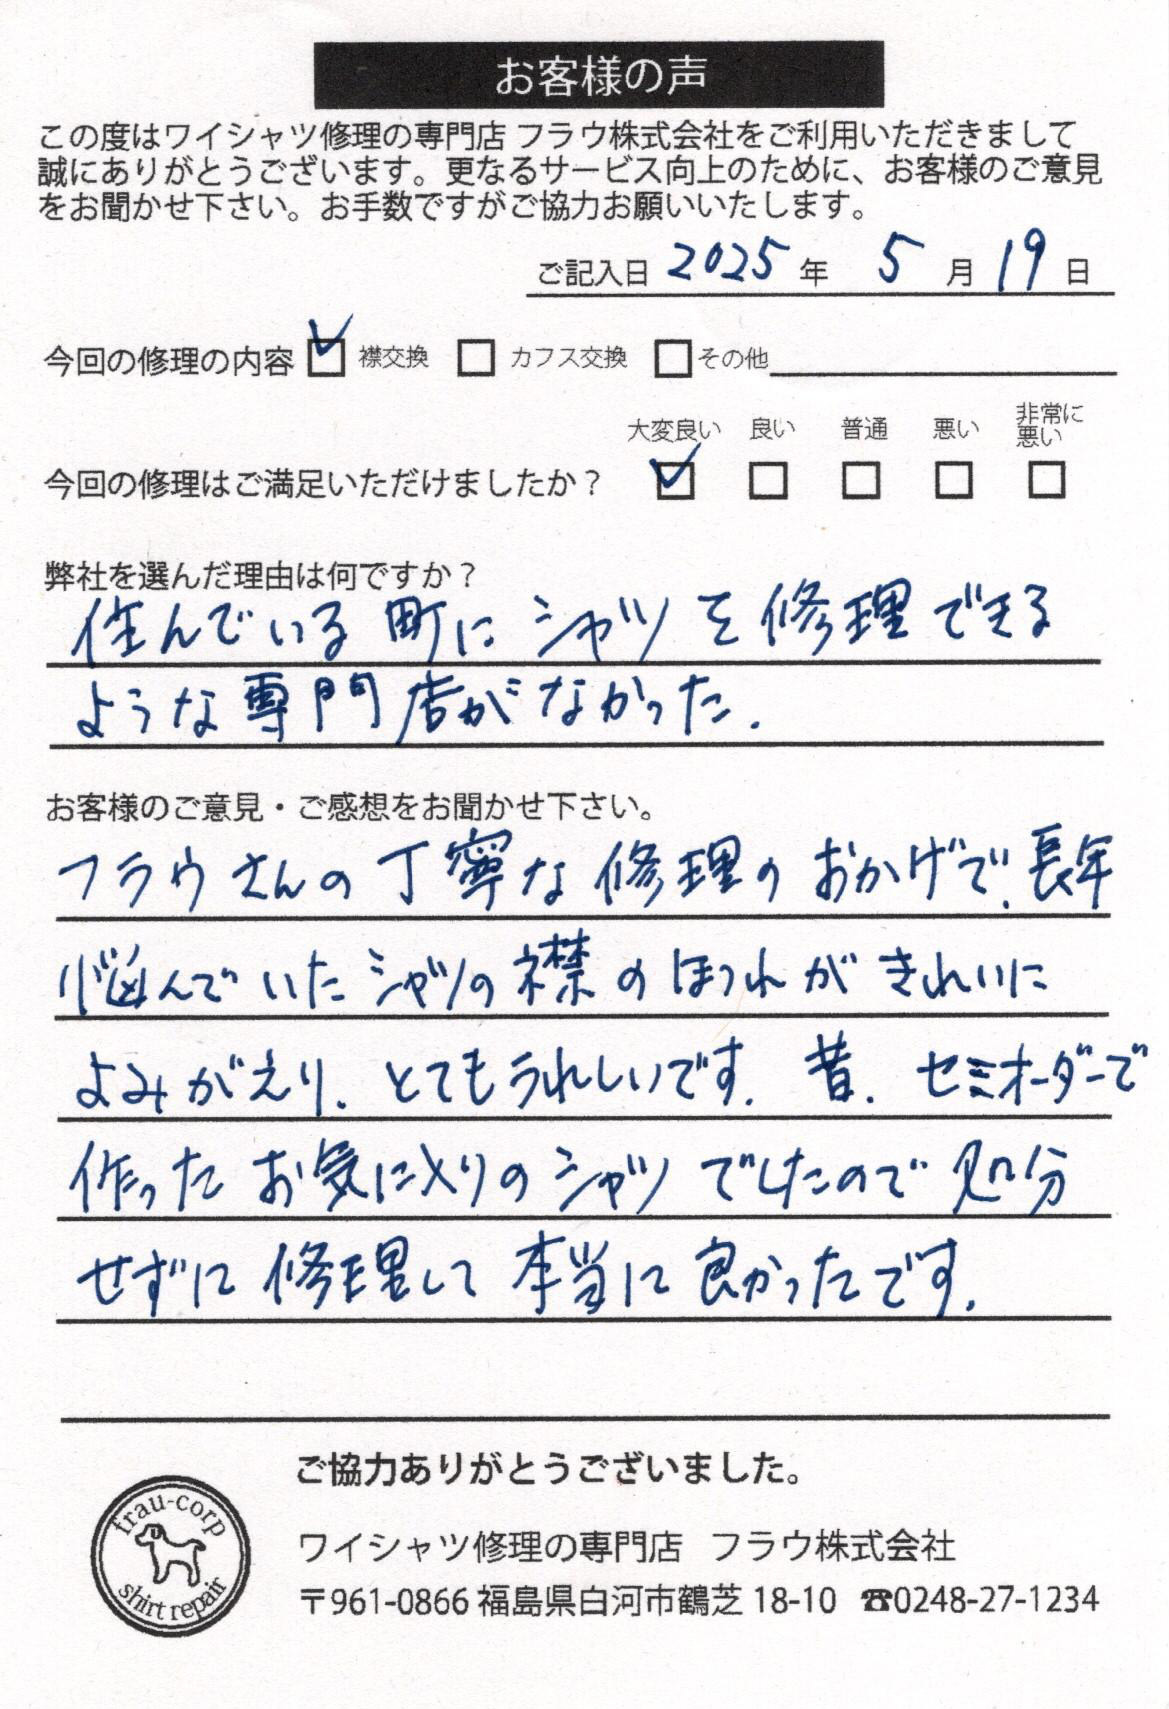 お客様の声
この度はワイシャツ修理の専門店 フラウ株式会社をご利用いただきまして
誠にありがとうございます。更なるサービス向上のために、お客様のご意見
をお聞かせ下さい。お手数ですがご協力お願いいたします。
ご記入日 2025 年 5 月 19 日
今回の修理の内容 ☑ 襟交換 □ カフス交換 □ その他
大変良い 良い 普通 悪い 非常に悪い
今回の修理はご満足いただけましたか？ ☑ □ □ □ □
弊社を選んだ理由は何ですか？
住んでいる町にシャツを修理できる
ような専門店がなかった.
お客様のご意見・ご感想をお聞かせ下さい。
フラウさんの丁寧な修理のおかげで、長年
悩んでいたシャツの襟のほつれがきれいに
よみがえり、とてもうれしいです. 昔、セミオーダーで
作ったお気に入りのシャツでしたので処分
せずに修理して本当に良かったです.
ご協力ありがとうございました。
frau-corp
shirt repair
ワイシャツ修理の専門店 フラウ株式会社
〒961-0866 福島県白河市鶴芝 18-10 ☎0248-27-1234